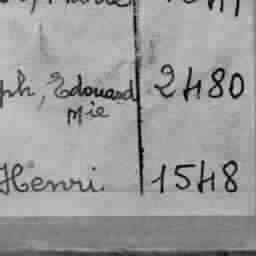 ph, Edouard 2480
Mie
Henri 1548